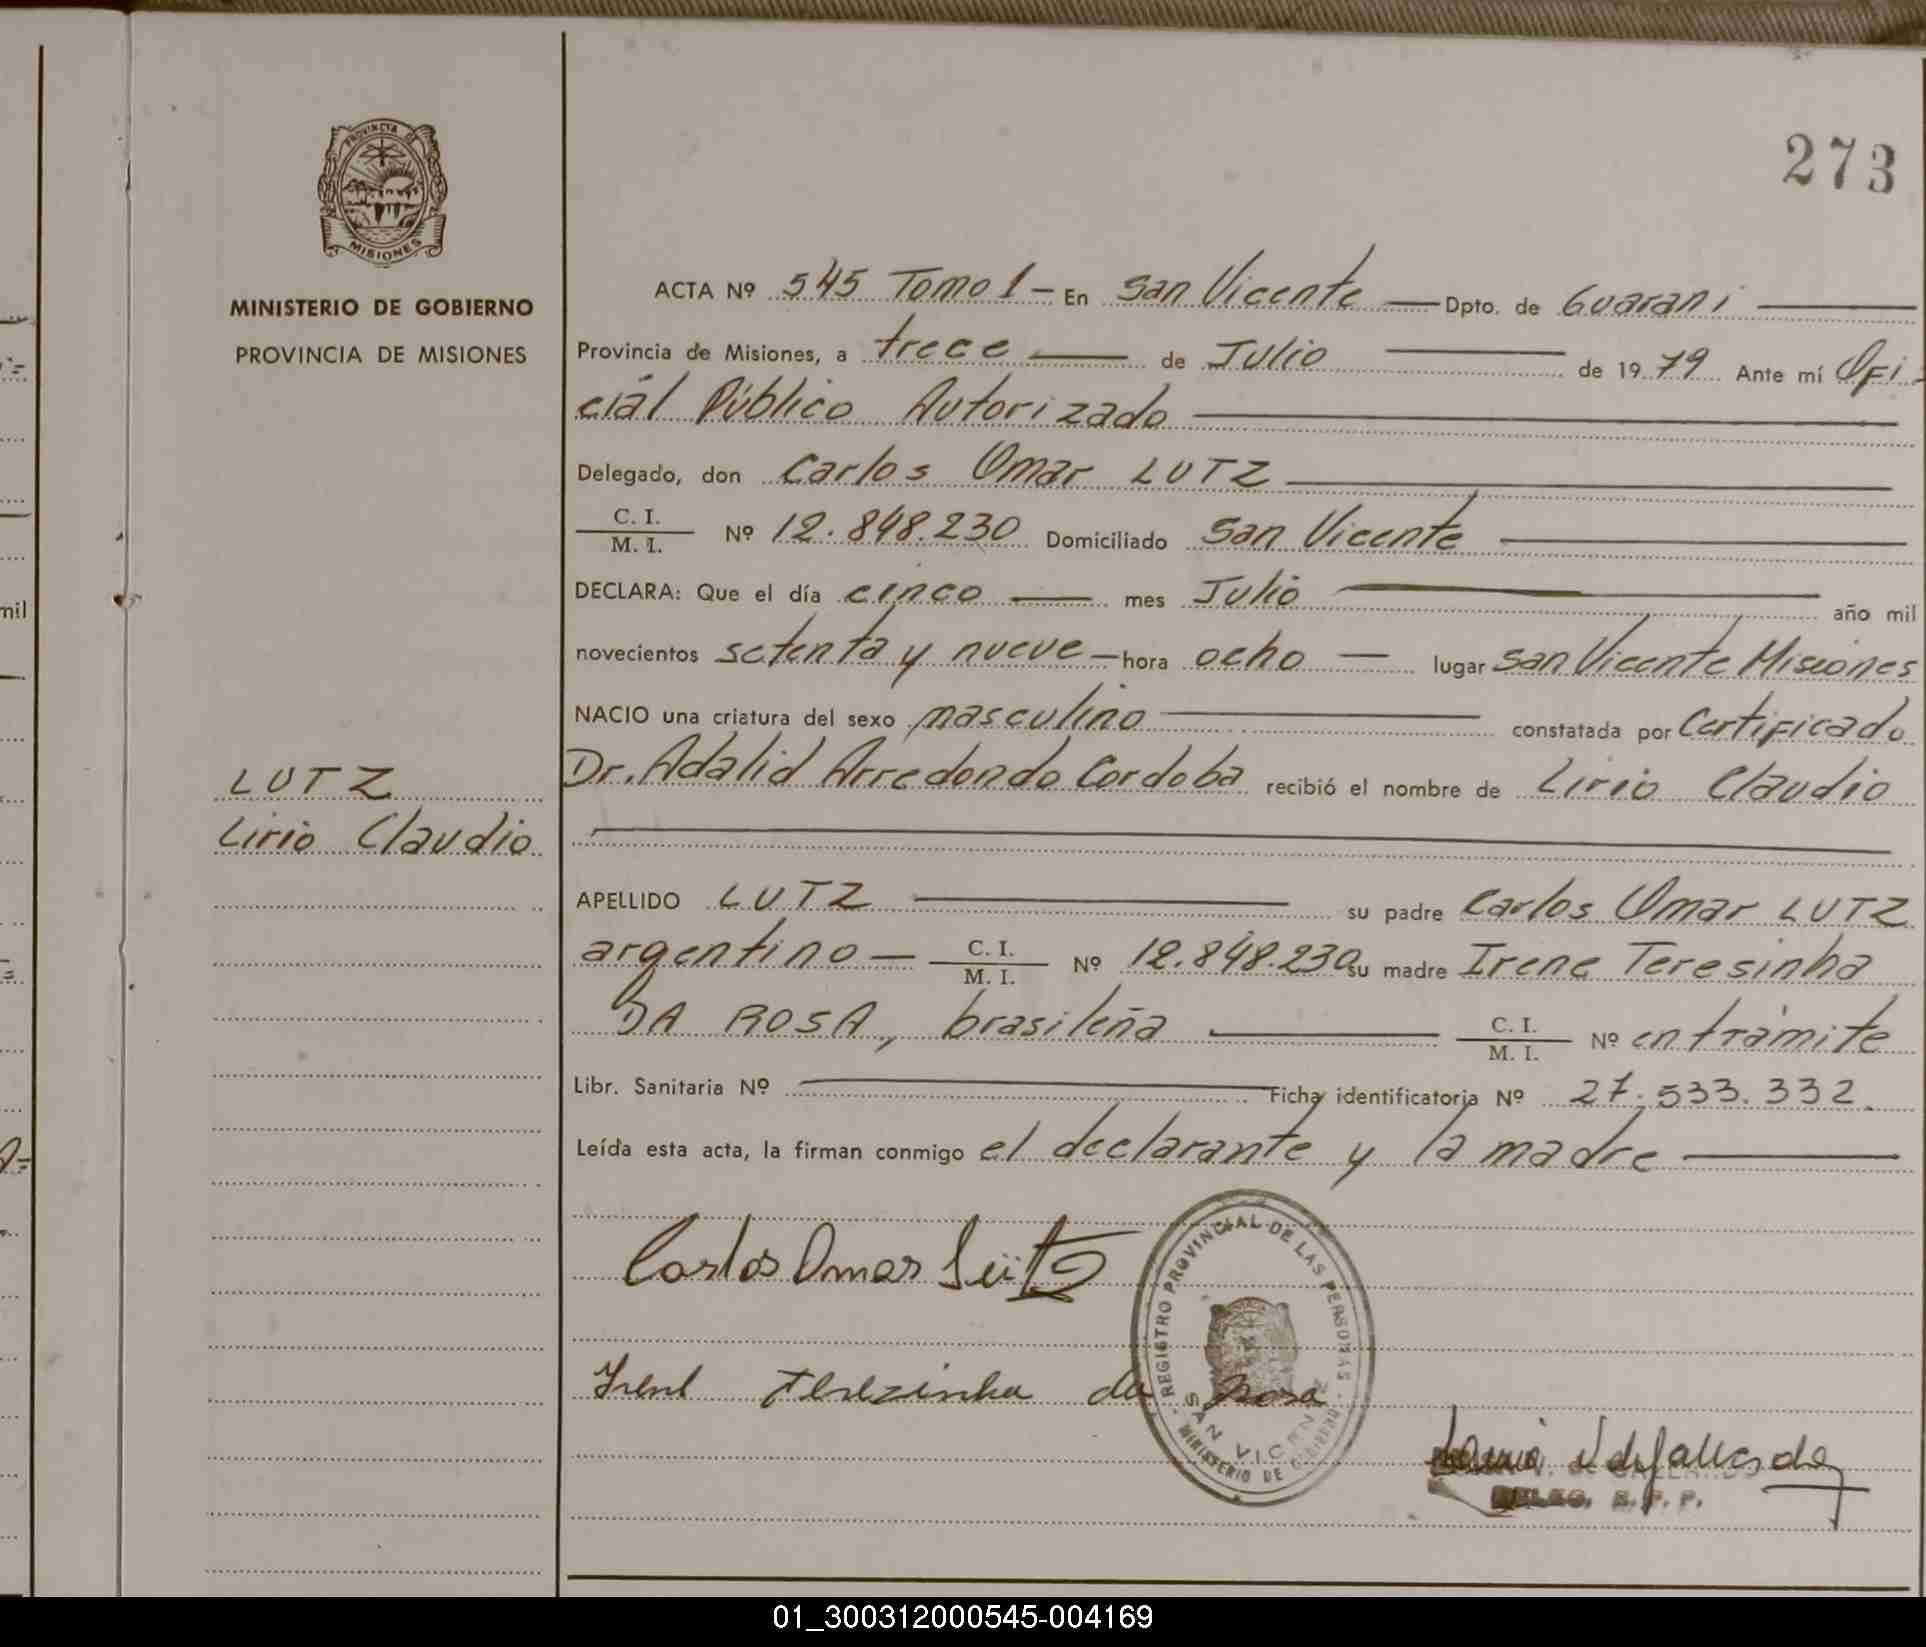 273
PROVINCIA DE
MISIONES
MINISTERIO DE GOBIERNO
PROVINCIA DE MISIONES
ACTA Nº 545 Tomo 1 — En San Vicente — Dpto. de Guarani —
Provincia de Misiones, a trece — de Julio — de 1979 Ante mí Ofi-
ciál Público Autorizado —
Delegado, don Carlos Omar LUTZ —
C. I.
M. I. Nº 12.848.230 Domiciliado San Vicente —
DECLARA: Que el día cinco — mes Julio — año mil
novecientos setenta y nueve — hora ocho — lugar San Vicente Misiones
NACIO una criatura del sexo masculino — constatada por Certificado
Dr. Adalid Arredondo Cordoba recibió el nombre de Lirio Claudio
LUTZ
Lirio Claudio
APELLIDO LUTZ — su padre Carlos Omar LUTZ
argentino — C. I.
M. I. Nº 12.848.230 su madre Irene Teresinha
DA ROSA, brasileña — C. I.
M. I. Nº en trámite
Libr. Sanitaria Nº — Ficha identificatoria Nº 27.533.332.
Leída esta acta, la firman conmigo el declarante y la madre —
Carlos Omar Lütz
Irene Terezinha da Rosa
REGISTRO PROVINCIAL DE LAS PERSONAS
SAN VICENTE
MINISTERIO DE GOBIERNO
R. P. P.
mil
01_300312000545-004169